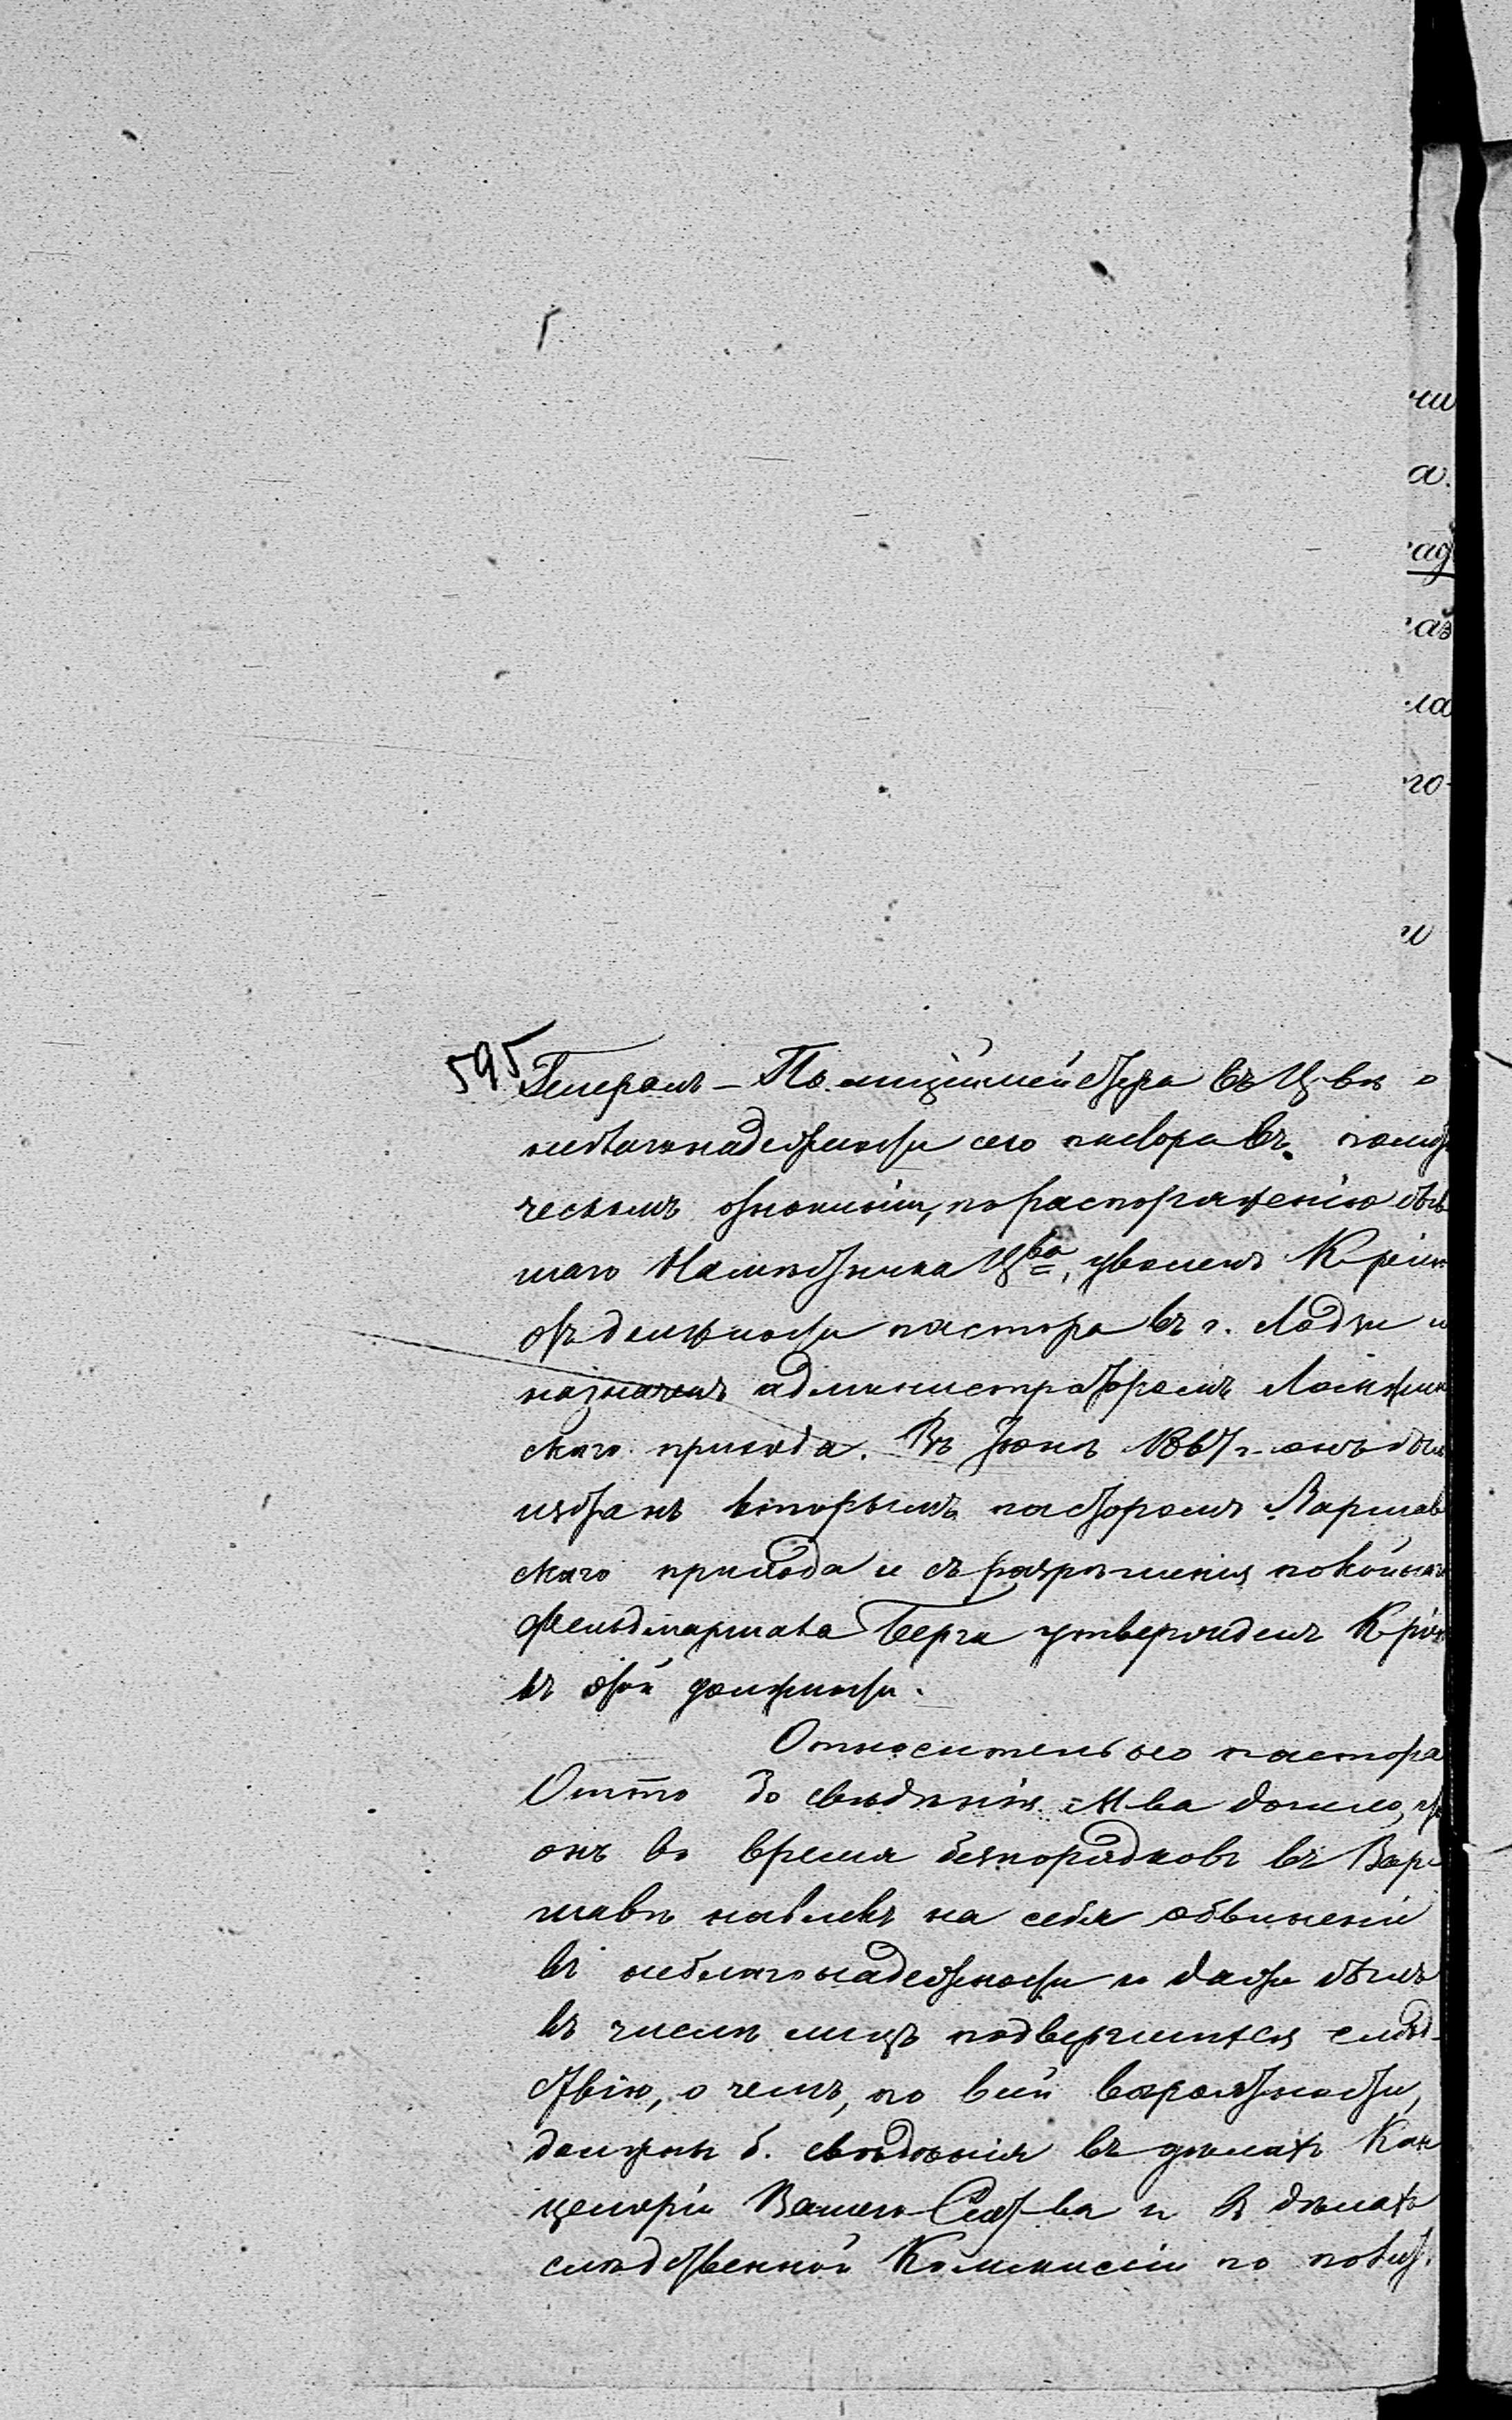 чи
а.
ад
аз
ла
го-
и
595 Генералъ-Полиціймейстера въ Ц-вѣ о
неблагонадежности сего пастора въ полити
ческомъ отношеніи, по распоряженію быв
шаго Намѣстника Цва, уволенъ
отъ должности пастора въ г. Лодзи и
назначенъ администраторомъ Ломжин
скаго прихода. Въ Іюнѣ 1867 г. онъ был
избранъ вторымъ пасторомъ Варшав
скаго прихода и съ разрѣшенія покойнаго
Фельдмаршала Берга утвержденъ
въ этой должности.
Относительно пастора
Отто до свѣдѣнія М-ва дошло, чт
онъ во время безпорядковъ въ Вар-
шавѣ навлекъ на себя обвиненіе
въ неблагонадежности и даже былъ
въ числѣ лицъ подвергшихся слѣд-
ствію, о чемъ, по всей вѣроятности,
должны б. свѣдѣнія въ дѣлахъ Кан
целяріи Вашего Сіят-ва и въ дѣлахъ
слѣдственной Коммисіи по полит.